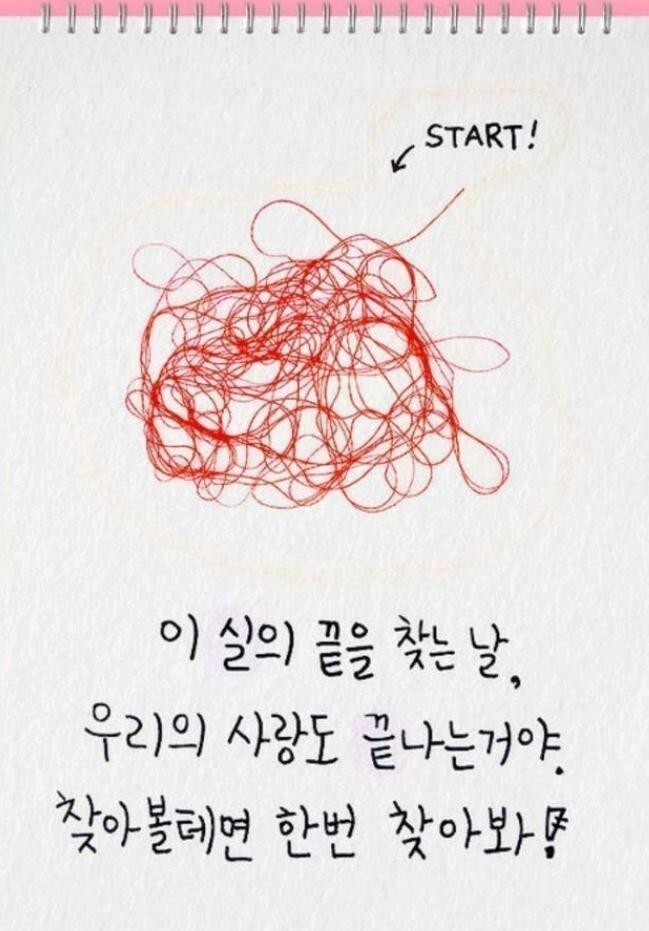 START!
이 실의 끝을 찾는 날,
우리의 사랑도 끝나는거야.
찾아볼테면 한번 찾아봐!